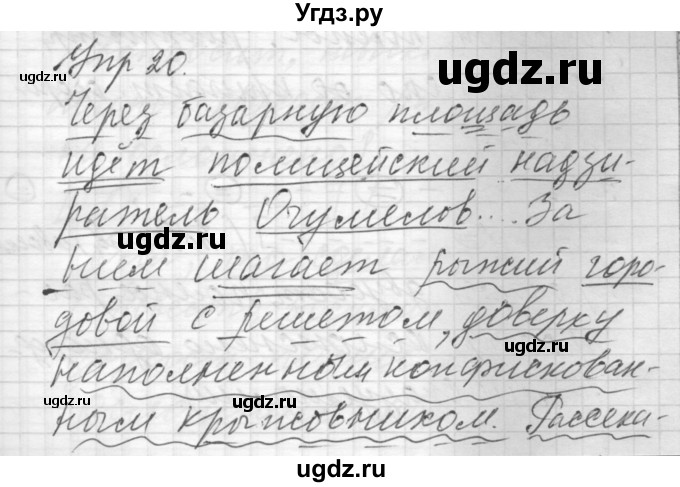 Угдз.ру
Упр 20.
Через базарную площадь
идёт полицейский надзи-
ратель Очумелов... За
ним шагает рыжий горо-
довой с решетом, доверху
наполненным конфискован-
ным крыжовником. Рассека-
ugdz.ru
ugdz.ru
ugdz.ru
ugdz.ru
ugdz.ru
ugdz.ru
ugdz.ru
ugdz.ru
ugdz.ru